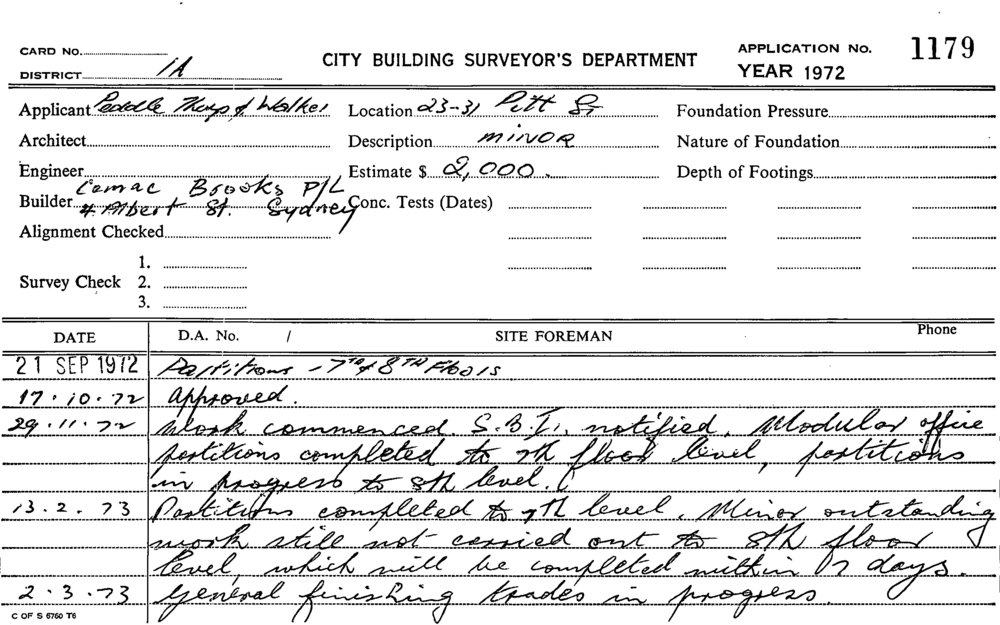 CARD No.
DISTRICT 1A
CITY BUILDING SURVEYOR'S DEPARTMENT
APPLICATION No. 1179
YEAR 1972
Applicant Peddle Thorp & Walker
Location 23-31 Pitt St
Foundation Pressure
Architect
Description MINOR
Nature of Foundation
Engineer
Estimate $ 2,000.
Depth of Footings
Lemac Brooks P/L
Builder 4 Albert St. Sydney
Conc. Tests (Dates)
Alignment Checked
1.
Survey Check 2.
3.
DATE D.A. No. / SITE FOREMAN Phone
21 SEP 1972 Partitions - 7TH & 8TH Floors
17.10.72 Approved.
29.11.72 Work commenced. S.B.I. notified. Modular office
partitions completed to 7th floor level, partitions
in progress to 8th level.
13.2.73 Partitions completed to 7th level. Minor outstanding
work still not carried out to 8th floor
level, which will be completed within 7 days.
2.3.73 General finishing trades in progress.
C OF S 6760 T6